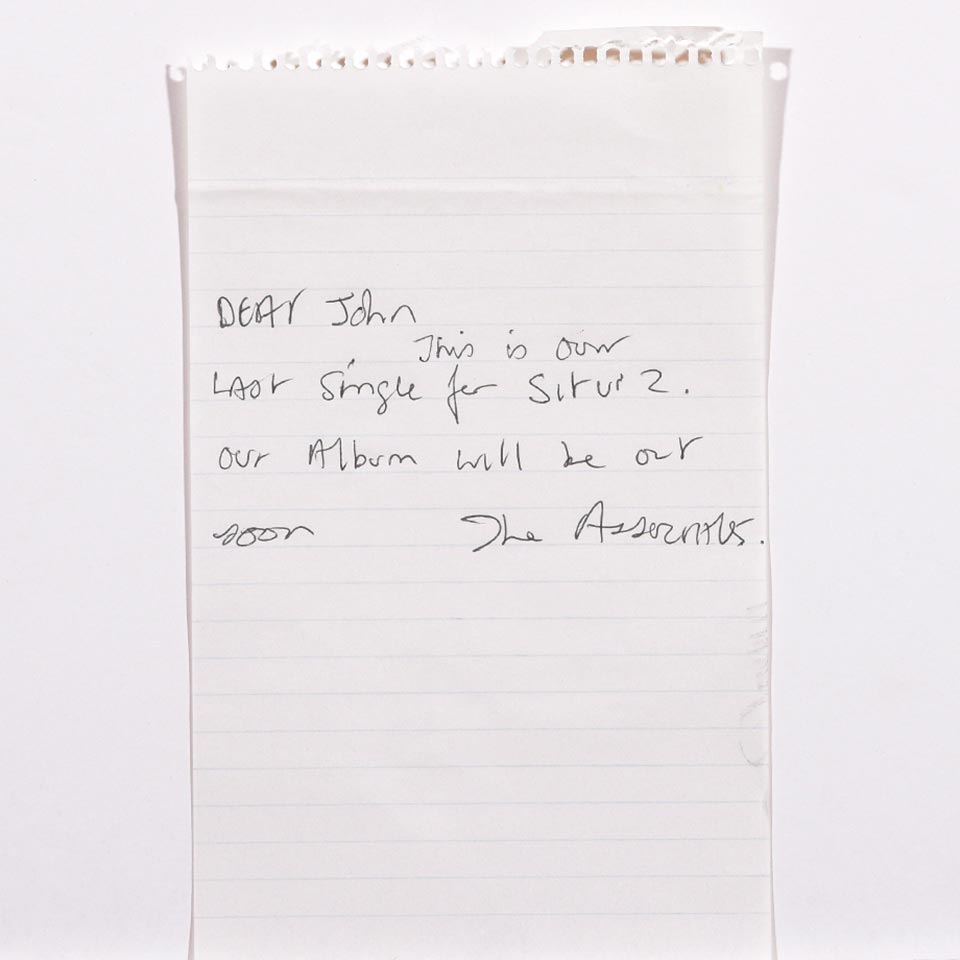 DEAr John
This is our
LAst single for Situ 2.
our Album will be out
soon The Associates.